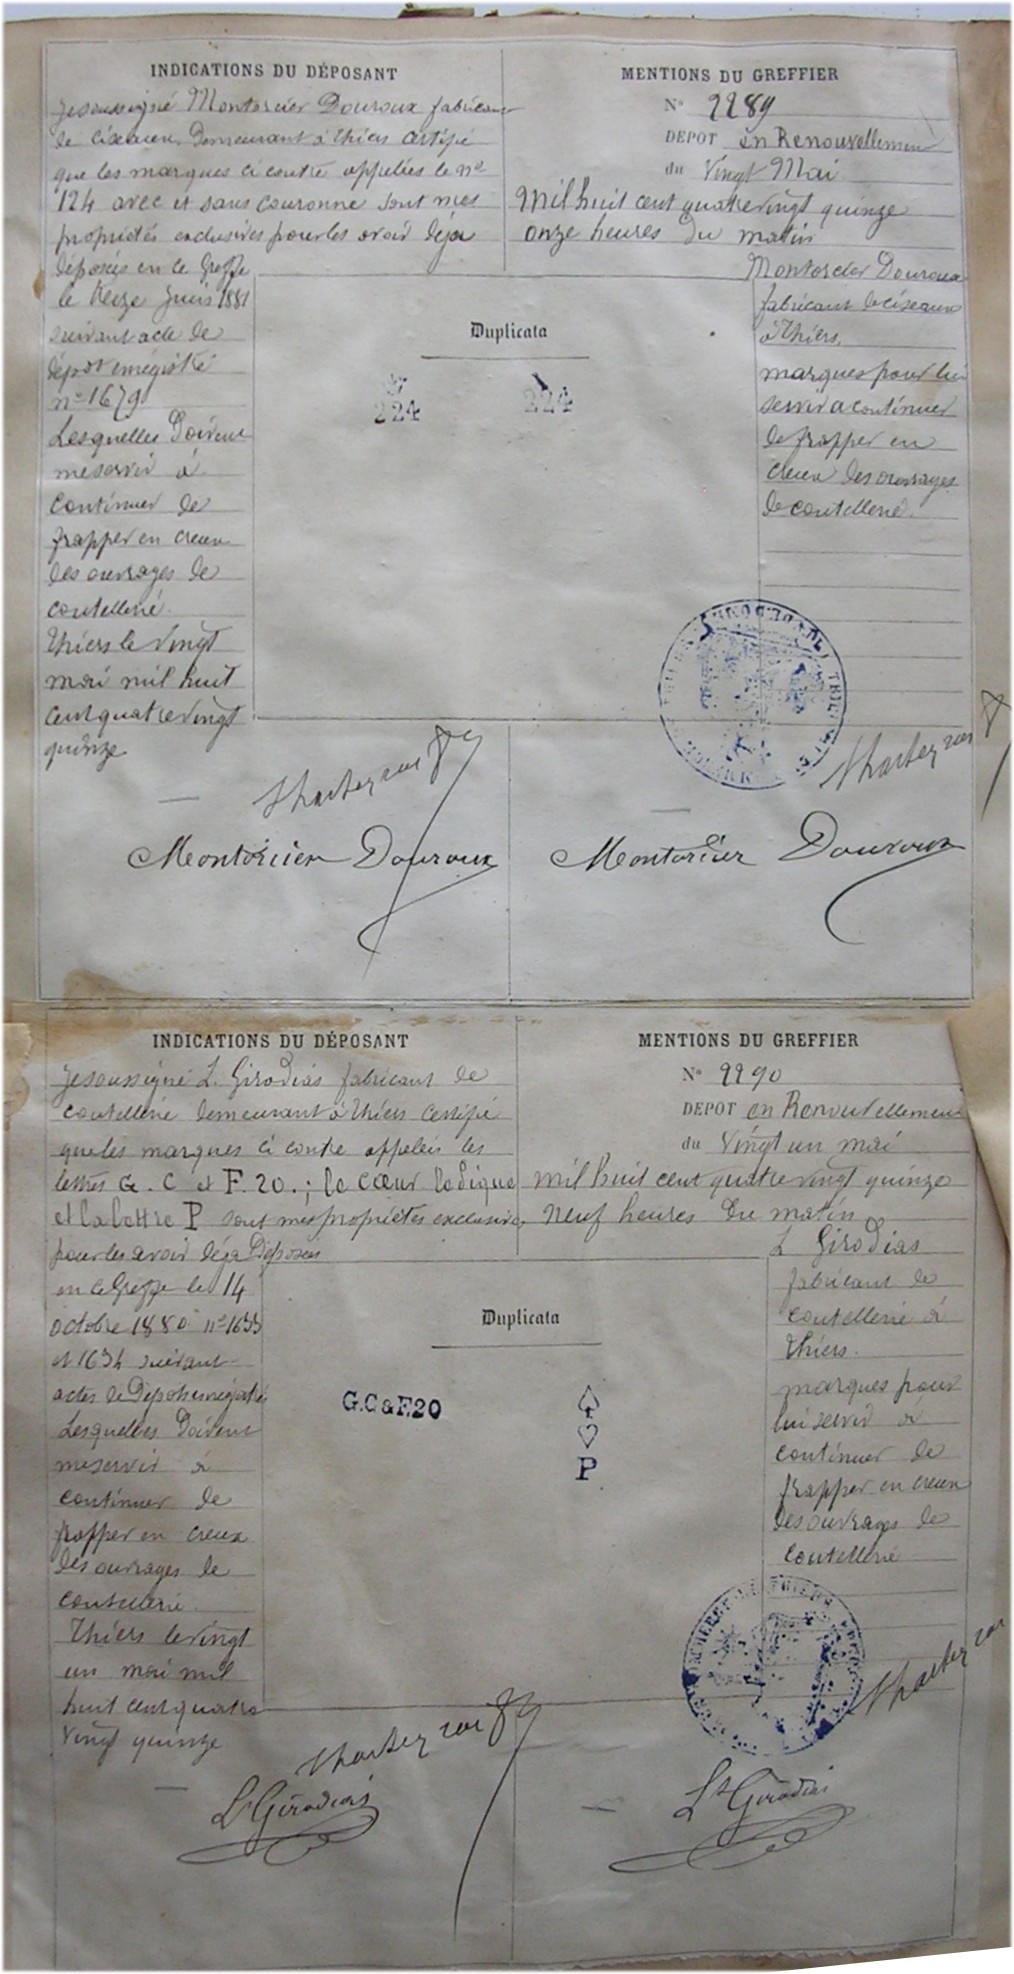 INDICATIONS DU DÉPOSANT
Je soussigné Montorcier Douroux fabricant
de ciseaux Demeurant à Thiers certifie
que les marques ci contre appelées le no
124 avec et sans couronne sont mes
propriétés exclusives pour les avoir déja
déposées en ce Greffe
le treize Juin 1881
suivant acte de
dépot enregistré
no 1679
Lesquelles Doivent
me servir à
continuer de
frapper en creux
des ouvrages de
coutellerie.
Thiers le vingt
mai mil huit
cent quatre vingt
quinze
MENTIONS DU GREFFIER
No 2289
DEPOT en Renouvellement
du Vingt Mai
Mil huit cent quatre vingt quinze
onze heures du matin
Montorcier Douroux
fabricant de ciseaux
à Thiers.
marques pour lui
servir a continuer
de frapper en
creux des ouvrages
de coutellerie.
Duplicata
224 224
Montorcier Douroux
Montorcier Douroux
INDICATIONS DU DÉPOSANT
Je soussigné L. Girodias fabricant de
coutellerie demeurant à Thiers certifie
que les marques ci contre appelées les
lettres G. C et F. 20. ; le cœur le pique
et la lettre P sont mes propriétés exclusives
pour les avoir déja Déposées
en ce Greffe le 14
octobre 1880 no 1633
et 1634 suivant
actes de Dépot enregistrés
Lesquelles Doivent
me servir à
continuer de
frapper en creux
des ouvrages de
coutellerie.
Thiers le vingt
un mai mil
huit cent quatre
vingt quinze
MENTIONS DU GREFFIER
No 2290
DEPOT en Renouvellement
du Vingt un mai
mil huit cent quatre vingt quinze
Neuf heures du matin
L Girodias
fabricant de
coutellerie à
Thiers.
marques pour
lui servir à
continuer de
frapper en creux
des ouvrages de
coutellerie
Duplicata
G.C&F.20
P
Lt Girodias
Lt Girodias